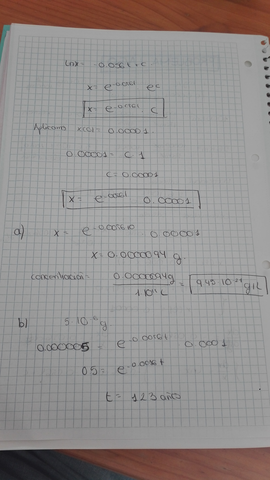 lnx = -0.0056t + c
x = e^-0.0056t e^c
x = e^-0.0056t . C
Aplicamos x(0) = 0.00001
0.00001 = C 1
C = 0.00001
x = e^-0.0056t 0.00001
a) x = e^-0.0056.10 0.00001
x = 0.0000094 g.
concentración = 0.0000094g / 1 10^11 L = 9.45 10^-17 g/L
b) 5 10^-6 g
0.000005 = e^-0.0056t 0.0001
0.5 = e^-0.0056t
t = 123 años